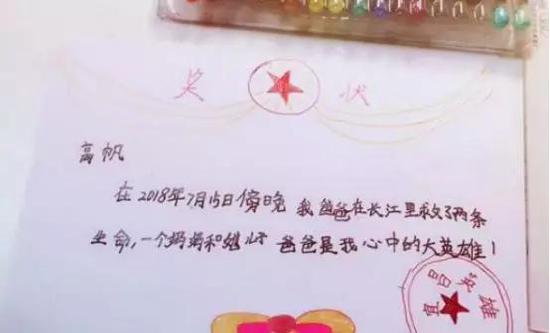 奖状
高帆
在2018年7月15日傍晚 我爸爸在长江里救了两条
生命,一个妈妈和 爸爸是我心中的大英雄!
宜昌英雄